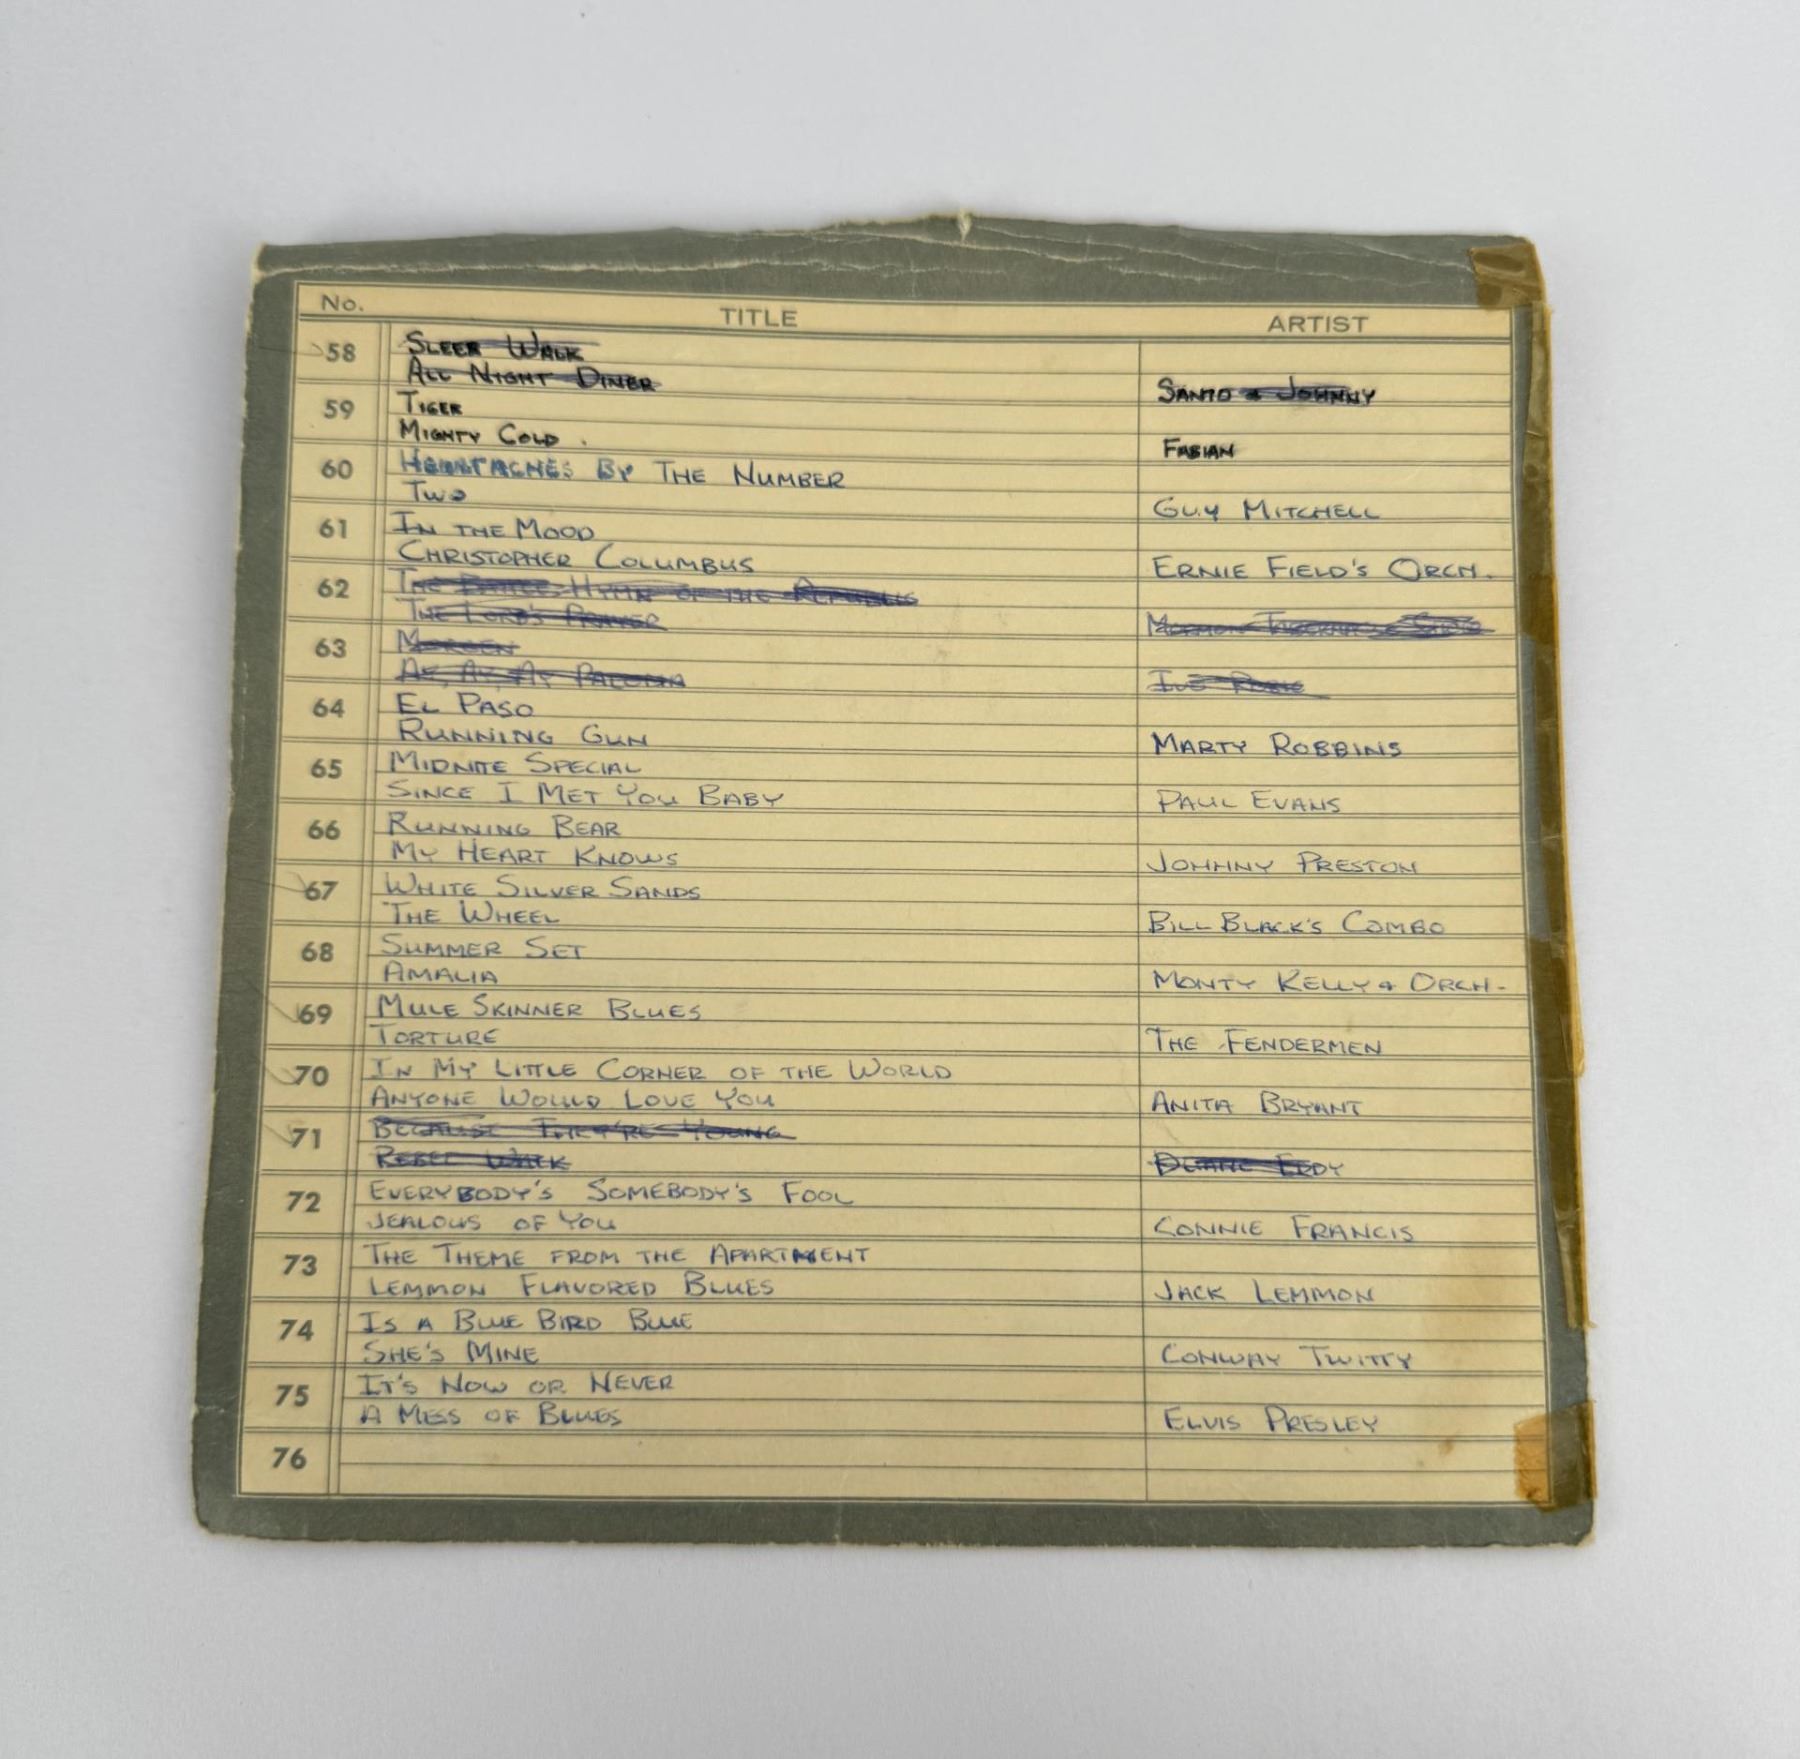 No. TITLE ARTIST
58 Sleep Walk
All Night Diner Santo & Johnny
59 Tiger
Mighty Cold. Fabian
60 Heartaches By The Number
Two Guy Mitchell
61 In the Mood
Christopher Columbus Ernie Field's Orch.
62 The Battle Hymn of the Republic
The Lord's Prayer Mormon
63 Morgen
Ay, Ay, Ay Paloma Ivo Robic
64 El Paso
Running Gun Marty Robbins
65 Midnite Special
Since I Met You Baby Paul Evans
66 Running Bear
My Heart Knows Johnny Preston
67 White Silver Sands
The Wheel Bill Black's Combo
68 Summer Set
Amalia Monty Kelly & Orch.
69 Mule Skinner Blues
Torture The Fendermen
70 In My Little Corner of the World
Anyone Would Love You Anita Bryant
71 Because They're Young
Rebel Walk Duane Eddy
72 Everybody's Somebody's Fool
Jealous of You Connie Francis
73 The Theme from the Apartment
Lemmon Flavored Blues Jack Lemmon
74 Is a Blue Bird Blue
She's Mine Conway Twitty
75 It's Now or Never
A Mess of Blues Elvis Presley
76